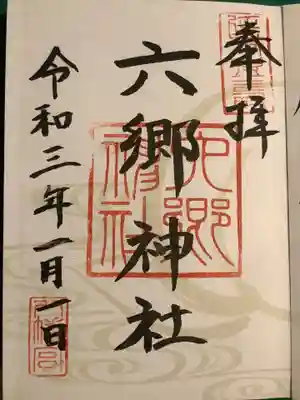 奉拝
六郷神社
令和三年一月一日